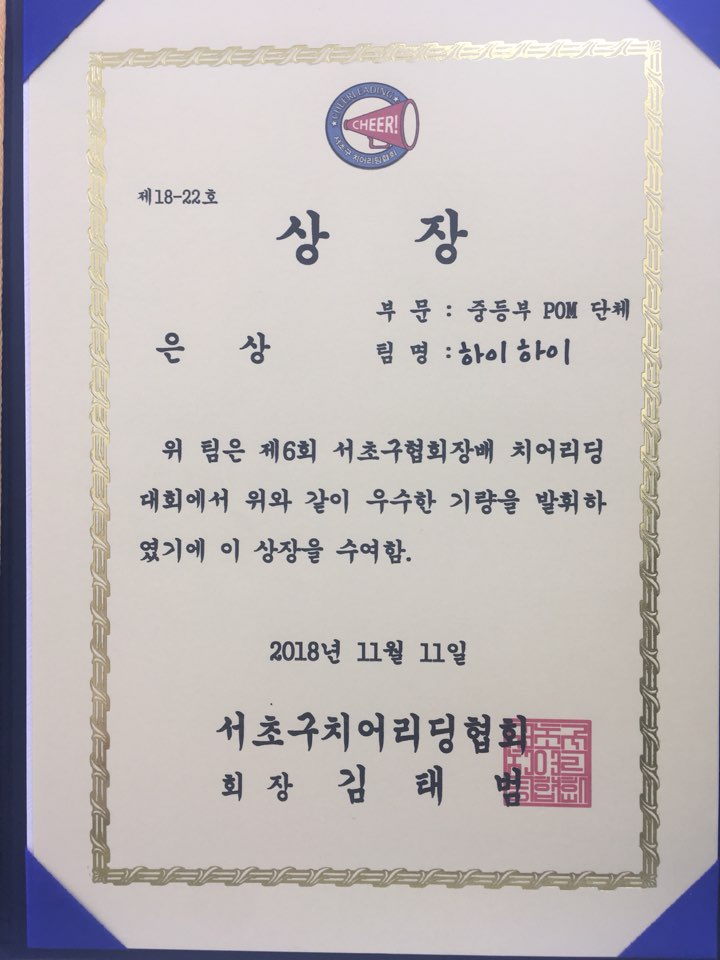 CHEERLEADING
CHEER!
서초구 치어리딩협회
제18-22호
상 장
부 문 : 중등부 POM 단체
은 상
팀 명 : 하이하이
위 팀은 제6회 서초구협회장배 치어리딩
대회에서 위와 같이 우수한 기량을 발휘하
였기에 이 상장을 수여함.
2018년 11월 11일
서초구치어리딩협회
회 장 김 태 범